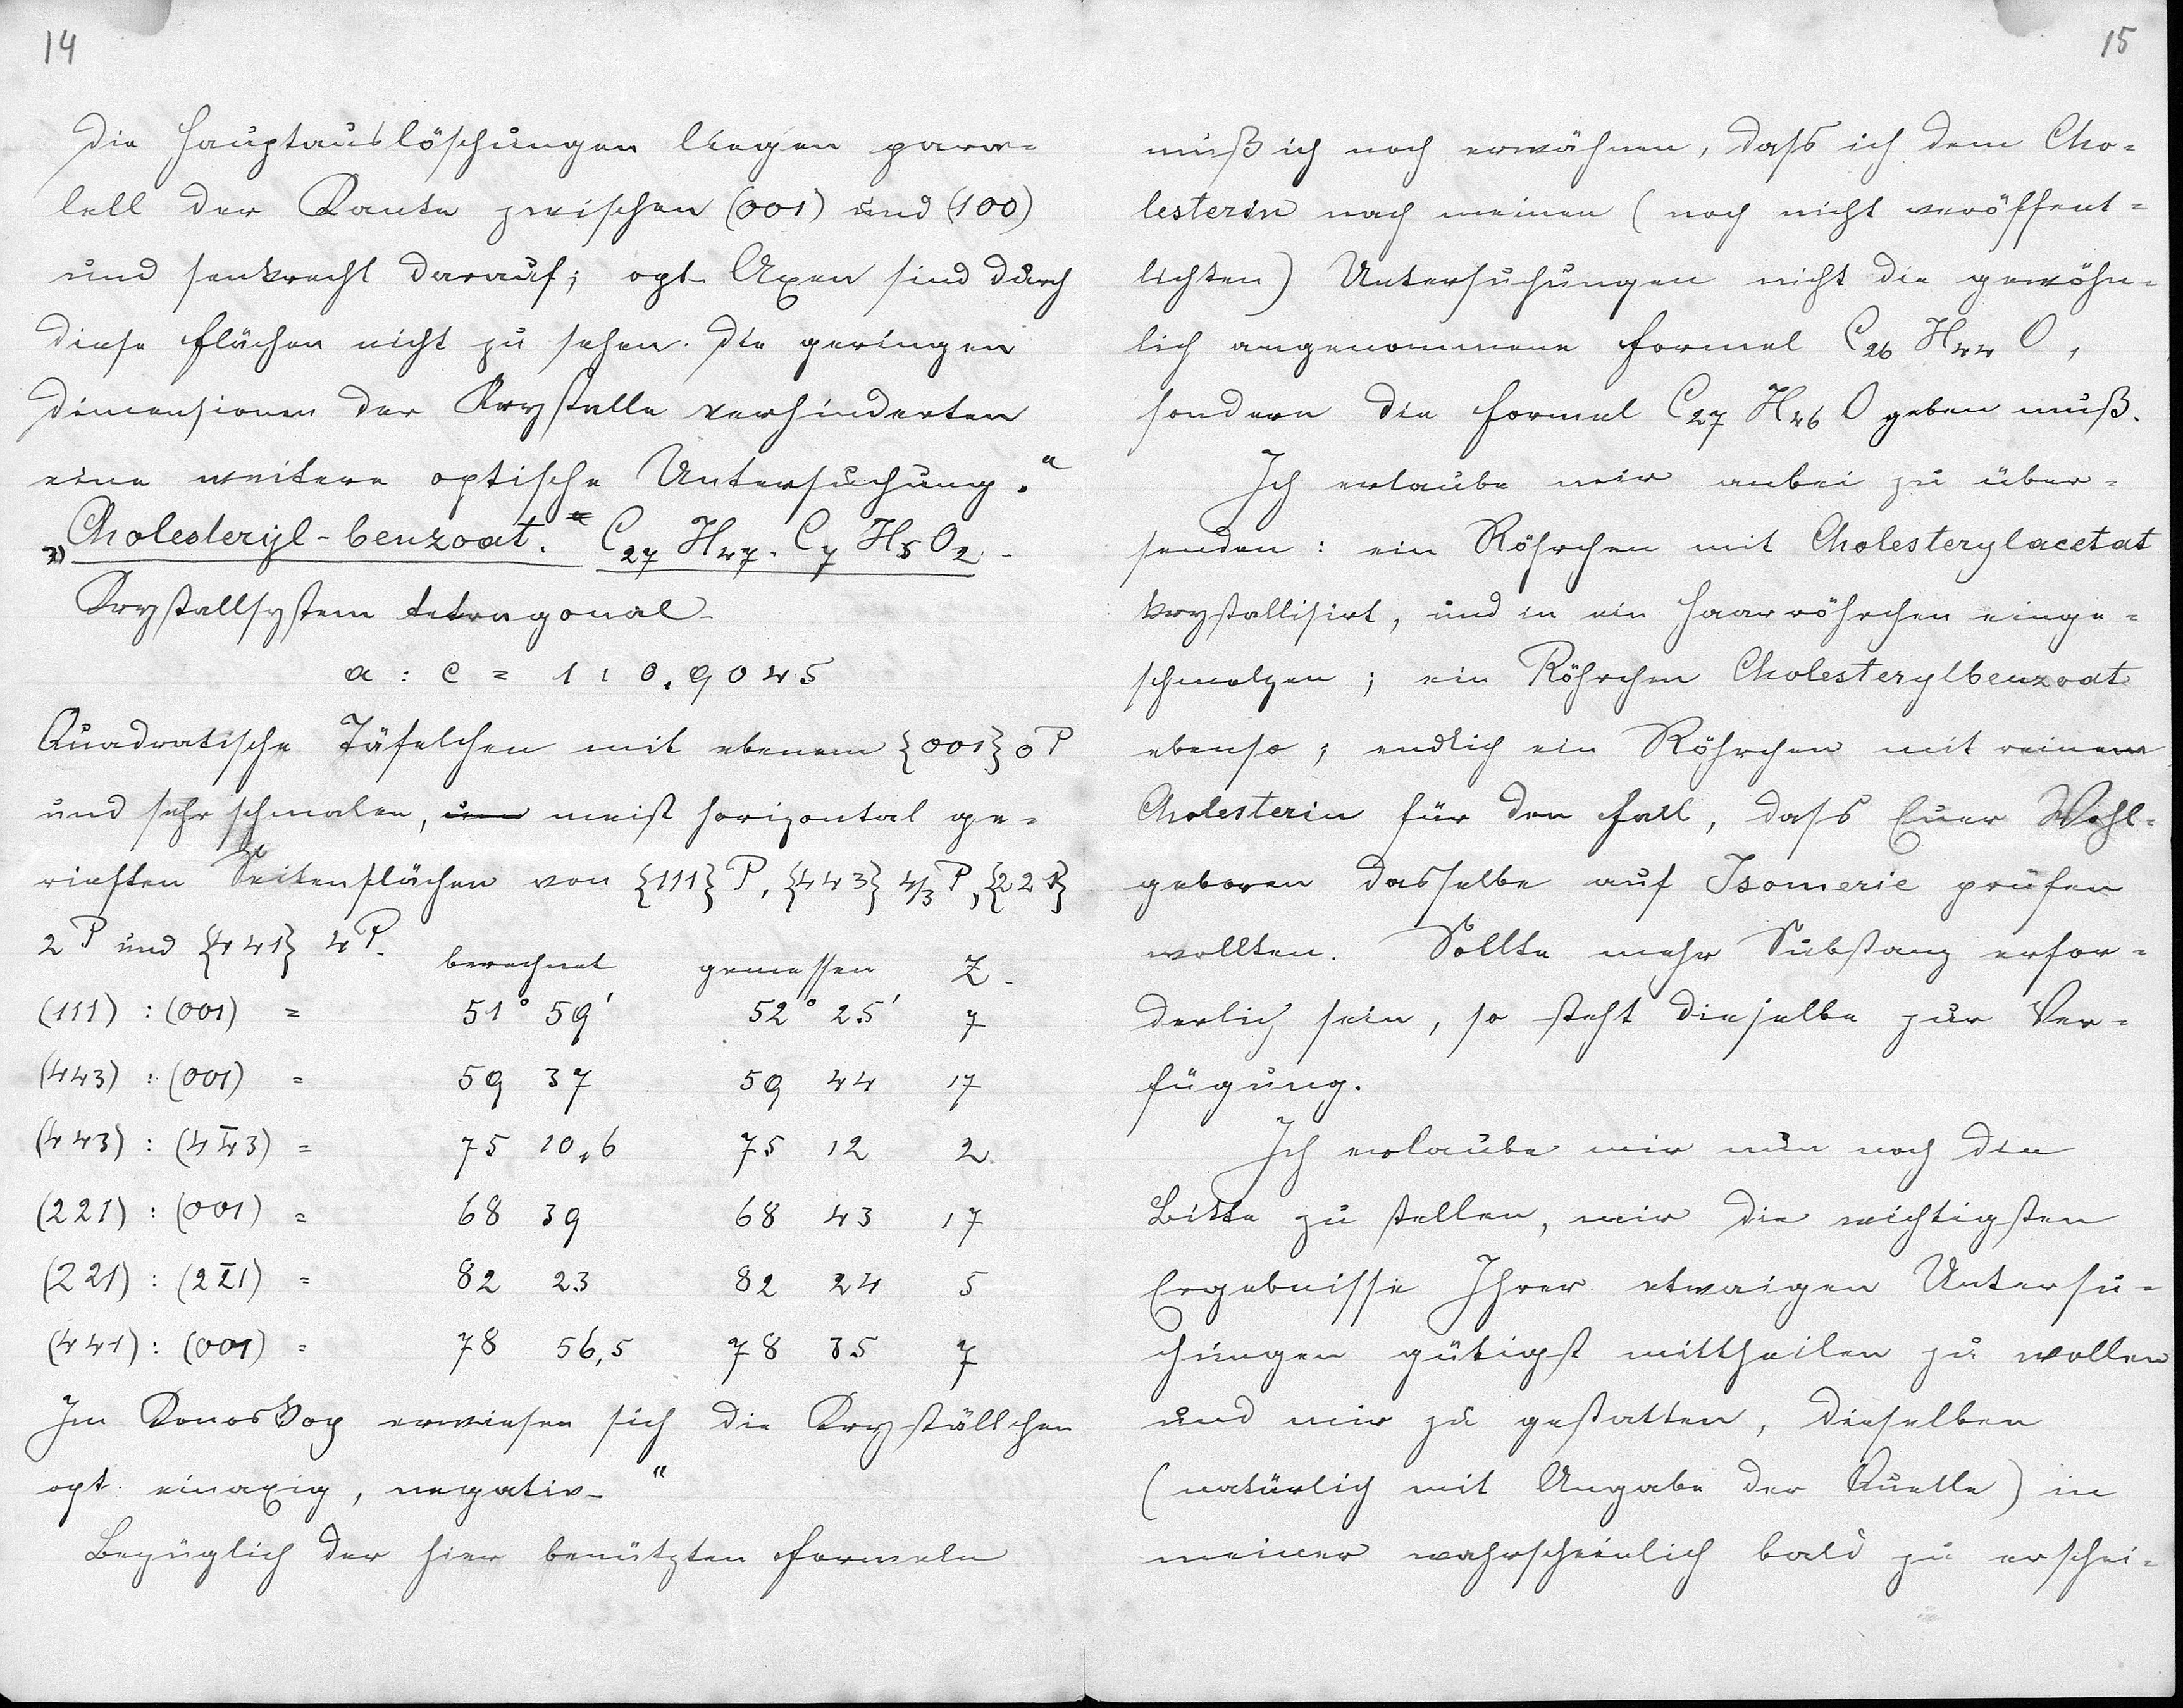 14
Die Hauptauslöschungen liegen paral-
lell der Kante zwischen (001) und (100)
und senkrecht darauf; opt. Axen sind durch
diese Flächen nicht zu sehen. Die geringen
Dimensionen der Krystalle verhinderten
eine weitere optische Untersuchung."
„Cholesteryl-benzoat." C27 H47. C7 H5 O2.
Krystallsystem tetragonal.
a : c = 1 : 0,9045
Quadratische Täfelchen mit ebenem {001} oP
und sehr schmalen, meist horizontal ge-
rieften Seitenflächen von {111} P, {443} 4/3 P, {221}
2P und {441} 4P.
berechnet gemessen Z.
(111) : (001) = 51° 59' 52° 25' 7
(443) : (001) = 59 37 59 44 17
(443) : (44̄3) = 75 10,6 75 12 2
(221) : (001) = 68 39 68 43 17
(221) : (22̄1) = 82 23 82 24 5
(441) : (001) = 78 56,5 78 35 7
Im Konoskop erwiesen sich die Kryställchen
opt. einaxig, negativ."
Bezüglich der hier benützten Formeln
15
muß ich noch erwähnen, dass ich dem Cho-
lesterin nach meinen (noch nicht veröffent-
lichten) Untersuchungen nicht die gewöhn-
lich angenommene Formel C26 H44 O,
sondern die Formel C27 H46 O geben muß.
Ich erlaube mir anbei zu über-
senden: ein Röhrchen mit Cholesterylacetat
krystallisirt, und in ein Haarröhrchen einge-
schmolzen; ein Röhrchen Cholesterylbenzoat
ebenso; endlich ein Röhrchen mit reinem
Cholesterin für den Fall, dass Euer Wohl-
geboren dasselbe auf Isomerie prüfen
wollten. Sollte mehr Substanz erfor-
derlich sein, so steht dieselbe zur Ver-
fügung.
Ich erlaube mir nun noch die
Bitte zu stellen, mir die wichtigsten
Ergebnisse Ihrer etwaigen Untersu-
chungen gütigst mittheilen zu wollen
und mir zu gestatten, dieselben
(natürlich mit Angabe der Quelle) in
meiner wahrscheinlich bald zu erschei-